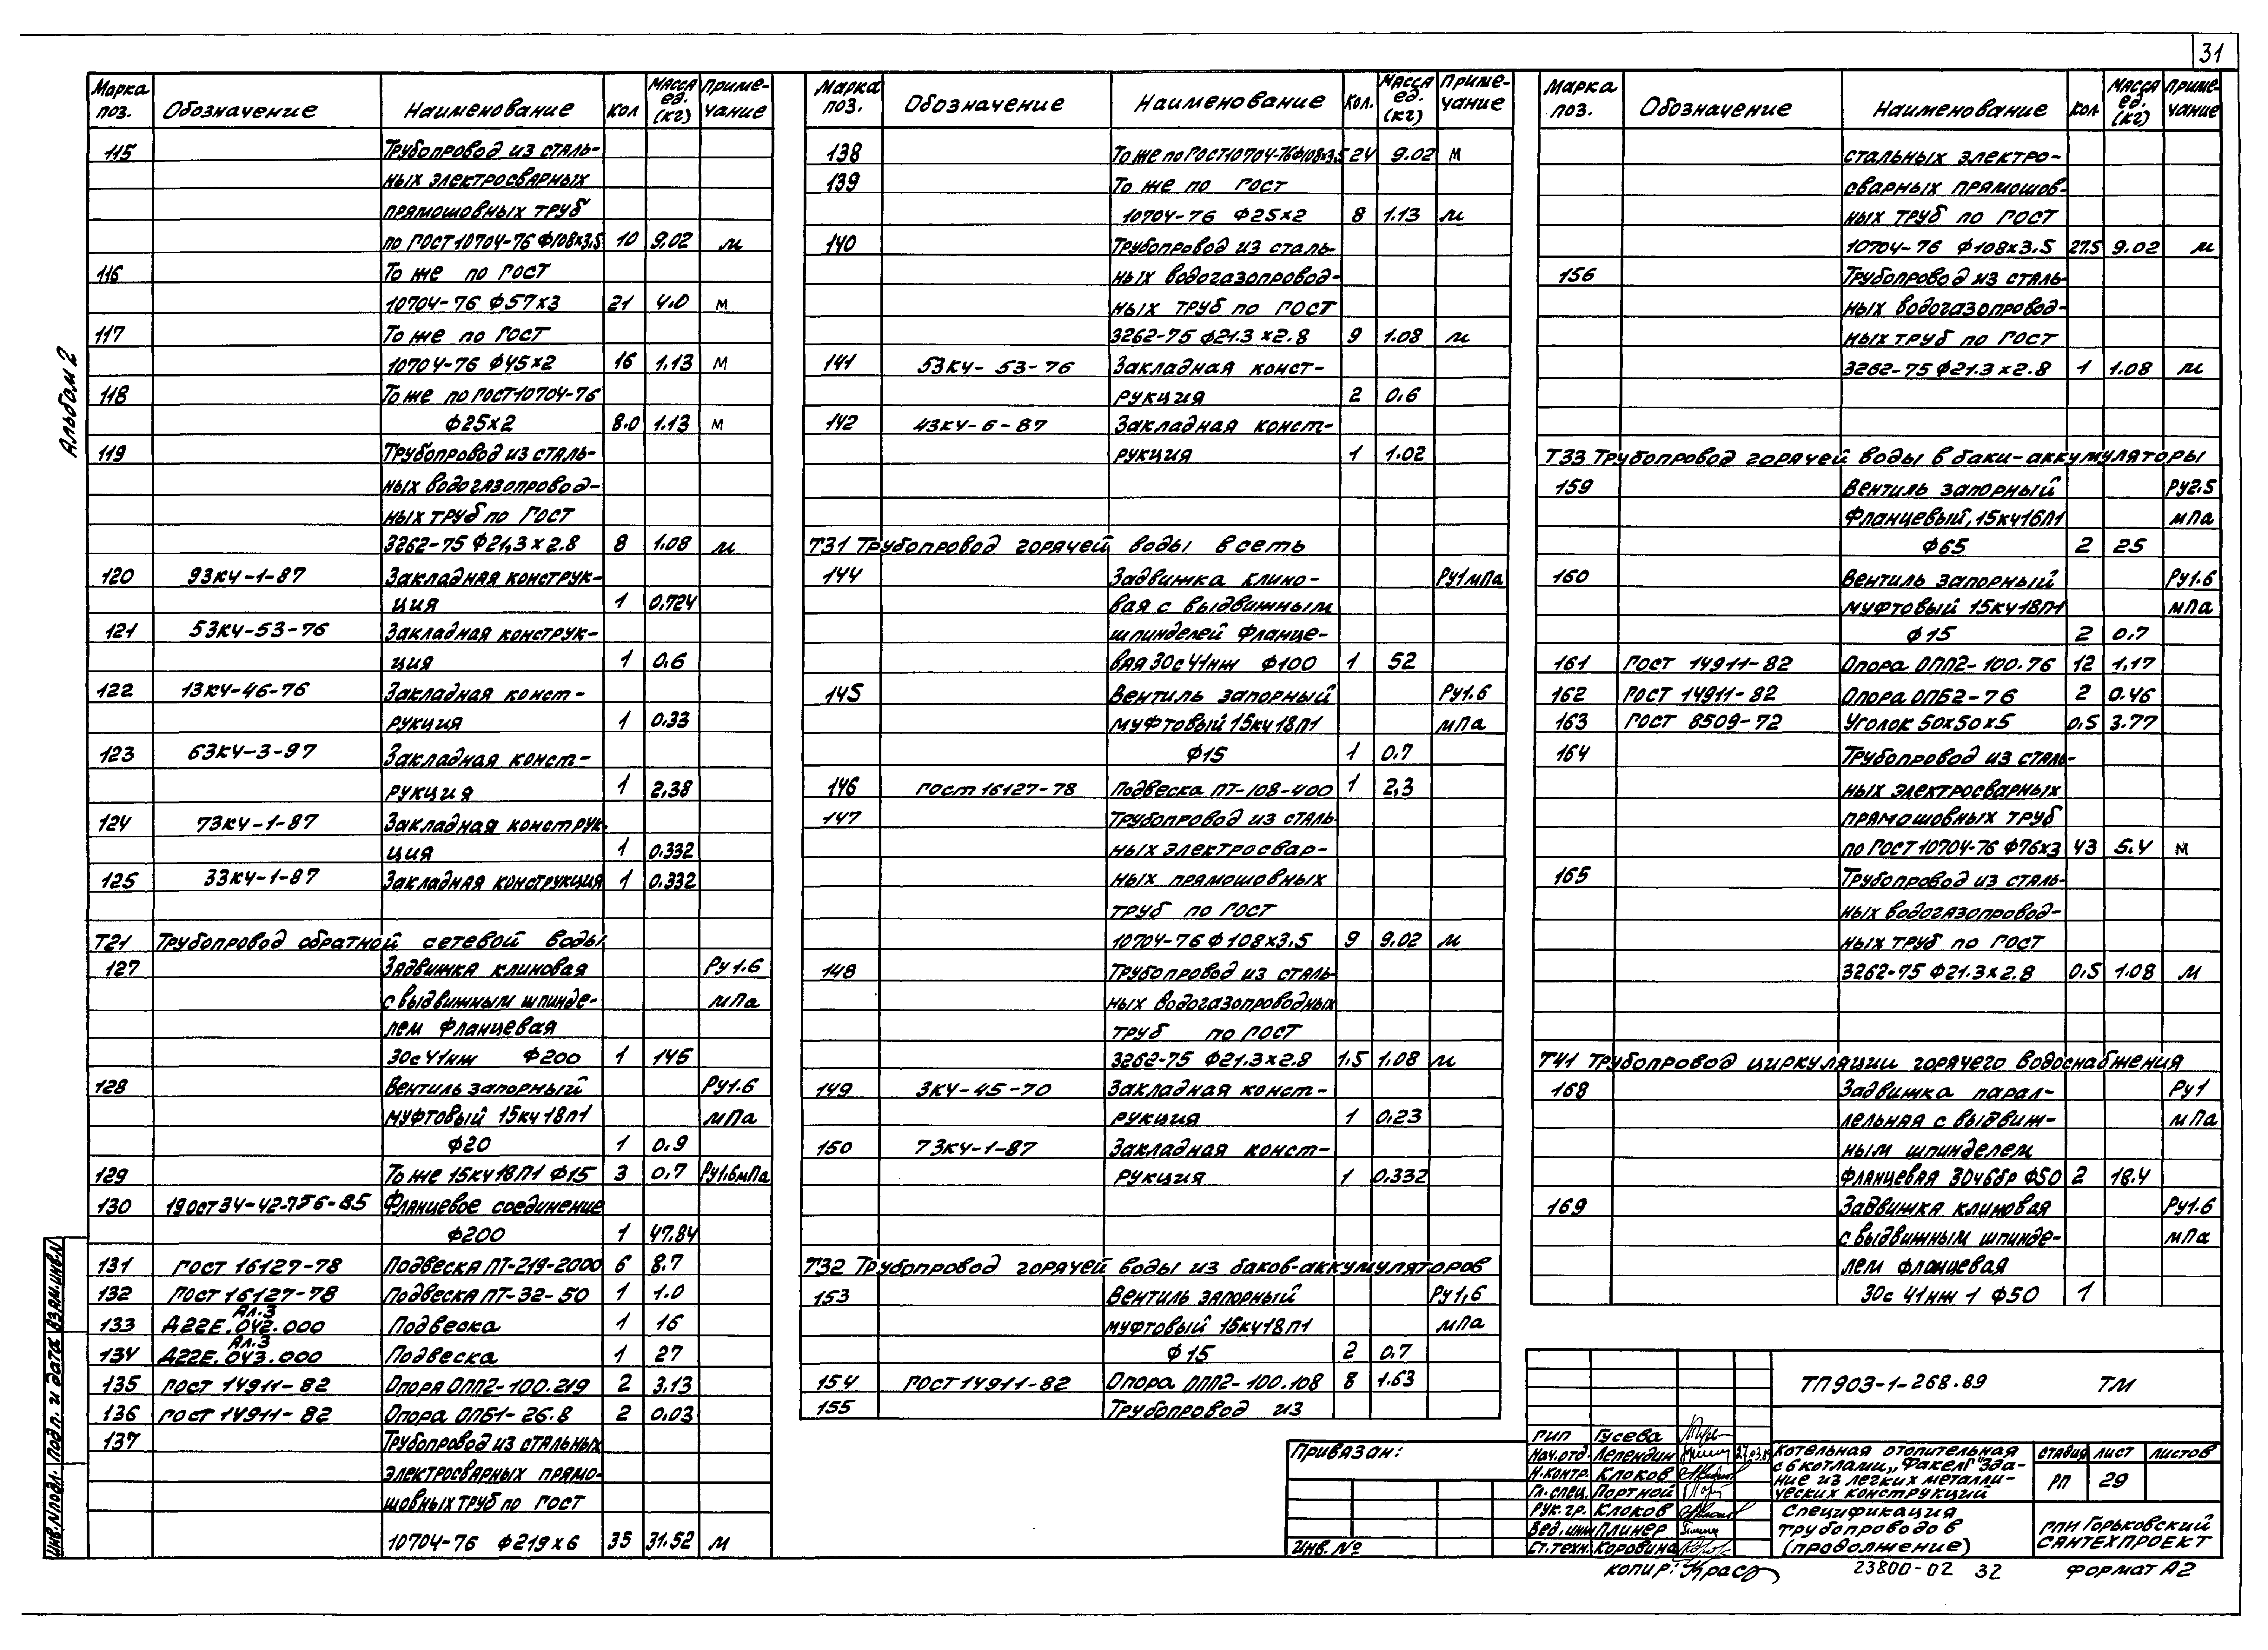 31
Альбом 2
Марка поз. Обозначение Наименование Кол Масса ед. (кг) Примечание
115 Трубопровод из сталь-
ных электросварных
прямошовных труб
по ГОСТ 10704-76 Ф108х3,5 10 9.02 м
116 То же по ГОСТ
10704-76 Ф57х3 21 4.0 м
117 То же по ГОСТ
10704-76 Ф45х2 16 1.13 м
118 То же по ГОСТ 10704-76
Ф25х2 8.0 1.13 м
119 Трубопровод из сталь-
ных водогазопровод-
ных труб по ГОСТ
3262-75 Ф21,3х2.8 8 1.08 м
120 93КЧ-1-87 Закладная конструк-
ция 1 0.724
121 53КЧ-53-76 Закладная конструк-
ция 1 0.6
122 13КЧ-46-76 Закладная конст-
рукция 1 0.33
123 63КЧ-3-97 Закладная конст-
рукция 1 2,38
124 73КЧ-1-87 Закладная конструк-
ция 1 0.332
125 33КЧ-1-87 Закладная конструкция 1 0.332
Т21 Трубопровод обратной сетевой воды
127 Задвижка клиновая Ру 1.6
с выдвижным шпинде- мПа
лем фланцевая
30с41нж Ф200 1 145
128 Вентиль запорный Ру1.6
муфтовый 15кч18п1 мПа
Ф20 1 0.9
129 То же 15кч18П1 Ф15 3 0.7 Ру1.6мПа
130 19ост34-42-756-85 Фланцевое соединение
Ф200 1 47.84
131 ГОСТ 16127-78 Подвеска ПТ-219-2000 6 8.7
132 ГОСТ 16127-78 Подвеска ПТ-32-50 1 1.0
Ал.3
133 А22Е.042.000 Подвеска 1 16
Ал.3
134 А22Е.043.000 Подвеска 1 27
135 ГОСТ 14911-82 Опора ОПП2-100.219 2 3.13
136 ГОСТ 14911-82 Опора ОПБ1-26.8 2 0.03
137 Трубопровод из стальных
электросварных прямо-
шовных труб по ГОСТ
10704-76 Ф219х6 35 31.52 м
Марка поз. Обозначение Наименование Кол. Масса ед. (кг) Примечание
138 То же по ГОСТ 10704-76 Ф108х3,5 24 9.02 м
139 То же по ГОСТ
10704-76 Ф25х2 8 1.13 м
140 Трубопровод из сталь-
ных водогазопровод-
ных труб по ГОСТ
3262-75 Ф21.3х2.8 9 1.08 м
141 53КЧ-53-76 Закладная конст-
рукция 2 0.6
142 43КЧ-6-87 Закладная конст-
рукция 1 1.02
Т31 Трубопровод горячей воды в сеть
144 Задвижка клино- Ру1мПа
вая с выдвижным
шпинделей фланце-
вая 30с41нж Ф100 1 52
145 Вентиль запорный Ру1.6
муфтовый 15кч18п1 мПа
Ф15 1 0.7
146 ГОСТ 16127-78 Подвеска ПТ-108-400 1 2,3
147 Трубопровод из сталь-
ных электросвар-
ных прямошовных
труб по ГОСТ
10704-76 Ф108х3.5 9 9.02 м
148 Трубопровод из сталь-
ных водогазопроводных
труб по ГОСТ
3262-75 Ф21.3х2.8 1.5 1.08 м
149 3КЧ-45-70 Закладная конст-
рукция 1 0.23
150 73КЧ-1-87 Закладная конст-
рукция 1 0.332
Т32 Трубопровод горячей воды из баков-аккумуляторов
153 Вентиль запорный Ру1,6
муфтовый 15кч18п1 мПа
Ф15 2 0.7
154 ГОСТ 14911-82 Опора ОПП2-100.108 8 1.63
155 Трубопровод из
Марка поз. Обозначение Наименование Кол. Масса ед. (кг) Примечание
стальных электро-
сварных прямошов-
ных труб по ГОСТ
10704-76 Ф108х3.5 27.5 9.02 м
156 Трубопровод из сталь-
ных водогазопровод-
ных труб по ГОСТ
3262-75 Ф21.3х2.8 1 1.08 м
Т33 Трубопровод горячей воды в баки-аккумуляторы
159 Вентиль запорный Ру2.5
Фланцевый, 15кч16п1 мПа
Ф65 2 25
160 Вентиль запорный Ру1.6
муфтовый 15кч18п1 мПа
Ф15 2 0.7
161 ГОСТ 14911-82 Опора ОПП2-100.76 12 1,17
162 ГОСТ 14911-82 Опора ОПБ2-76 2 0.46
163 ГОСТ 8509-72 Уголок 50х50х5 0,5 3.77
164 Трубопровод из сталь-
ных электросварных
прямошовных труб
по ГОСТ 10704-76 Ф76х3 43 5.4 м
165 Трубопровод из сталь-
ных водогазопровод-
ных труб по ГОСТ
3262-75 Ф21.3х2.8 0,5 1.08 м
Т41 Трубопровод циркуляции горячего водоснабжения
168 Задвижка парал- Ру1
лельная с выдвиж- мПа
ным шпинделем
фланцевая 30ч6бр Ф50 2 18.4
169 Задвижка клиновая Ру1.6
с выдвижным шпинде- мПа
лем фланцевая
30с 41нж 1 Ф50 1
ТП903-1-268.89 ТМ
Привязан:
Инв.№
ГИП Гусева
Нач.отд. Лепендин 27.03.89
Н.контр. Клоков
Гл.спец. Портной
Рук.гр. Клоков
Вед.инж Плинер
Ст.техн. Коровина
Котельная отопительная
с 6 котлами „Факел Г" Зда-
ние из легких металли-
ческих конструкций
Стадия Лист Листов
РП 29
Спецификация
трубопроводов
(продолжение)
ГПИ Горьковский
САНТЕХПРОЕКТ
копир: Красо
23800-02 32
Формат А2
Инв.Nподл. Подп. и дата Взам.инв.N